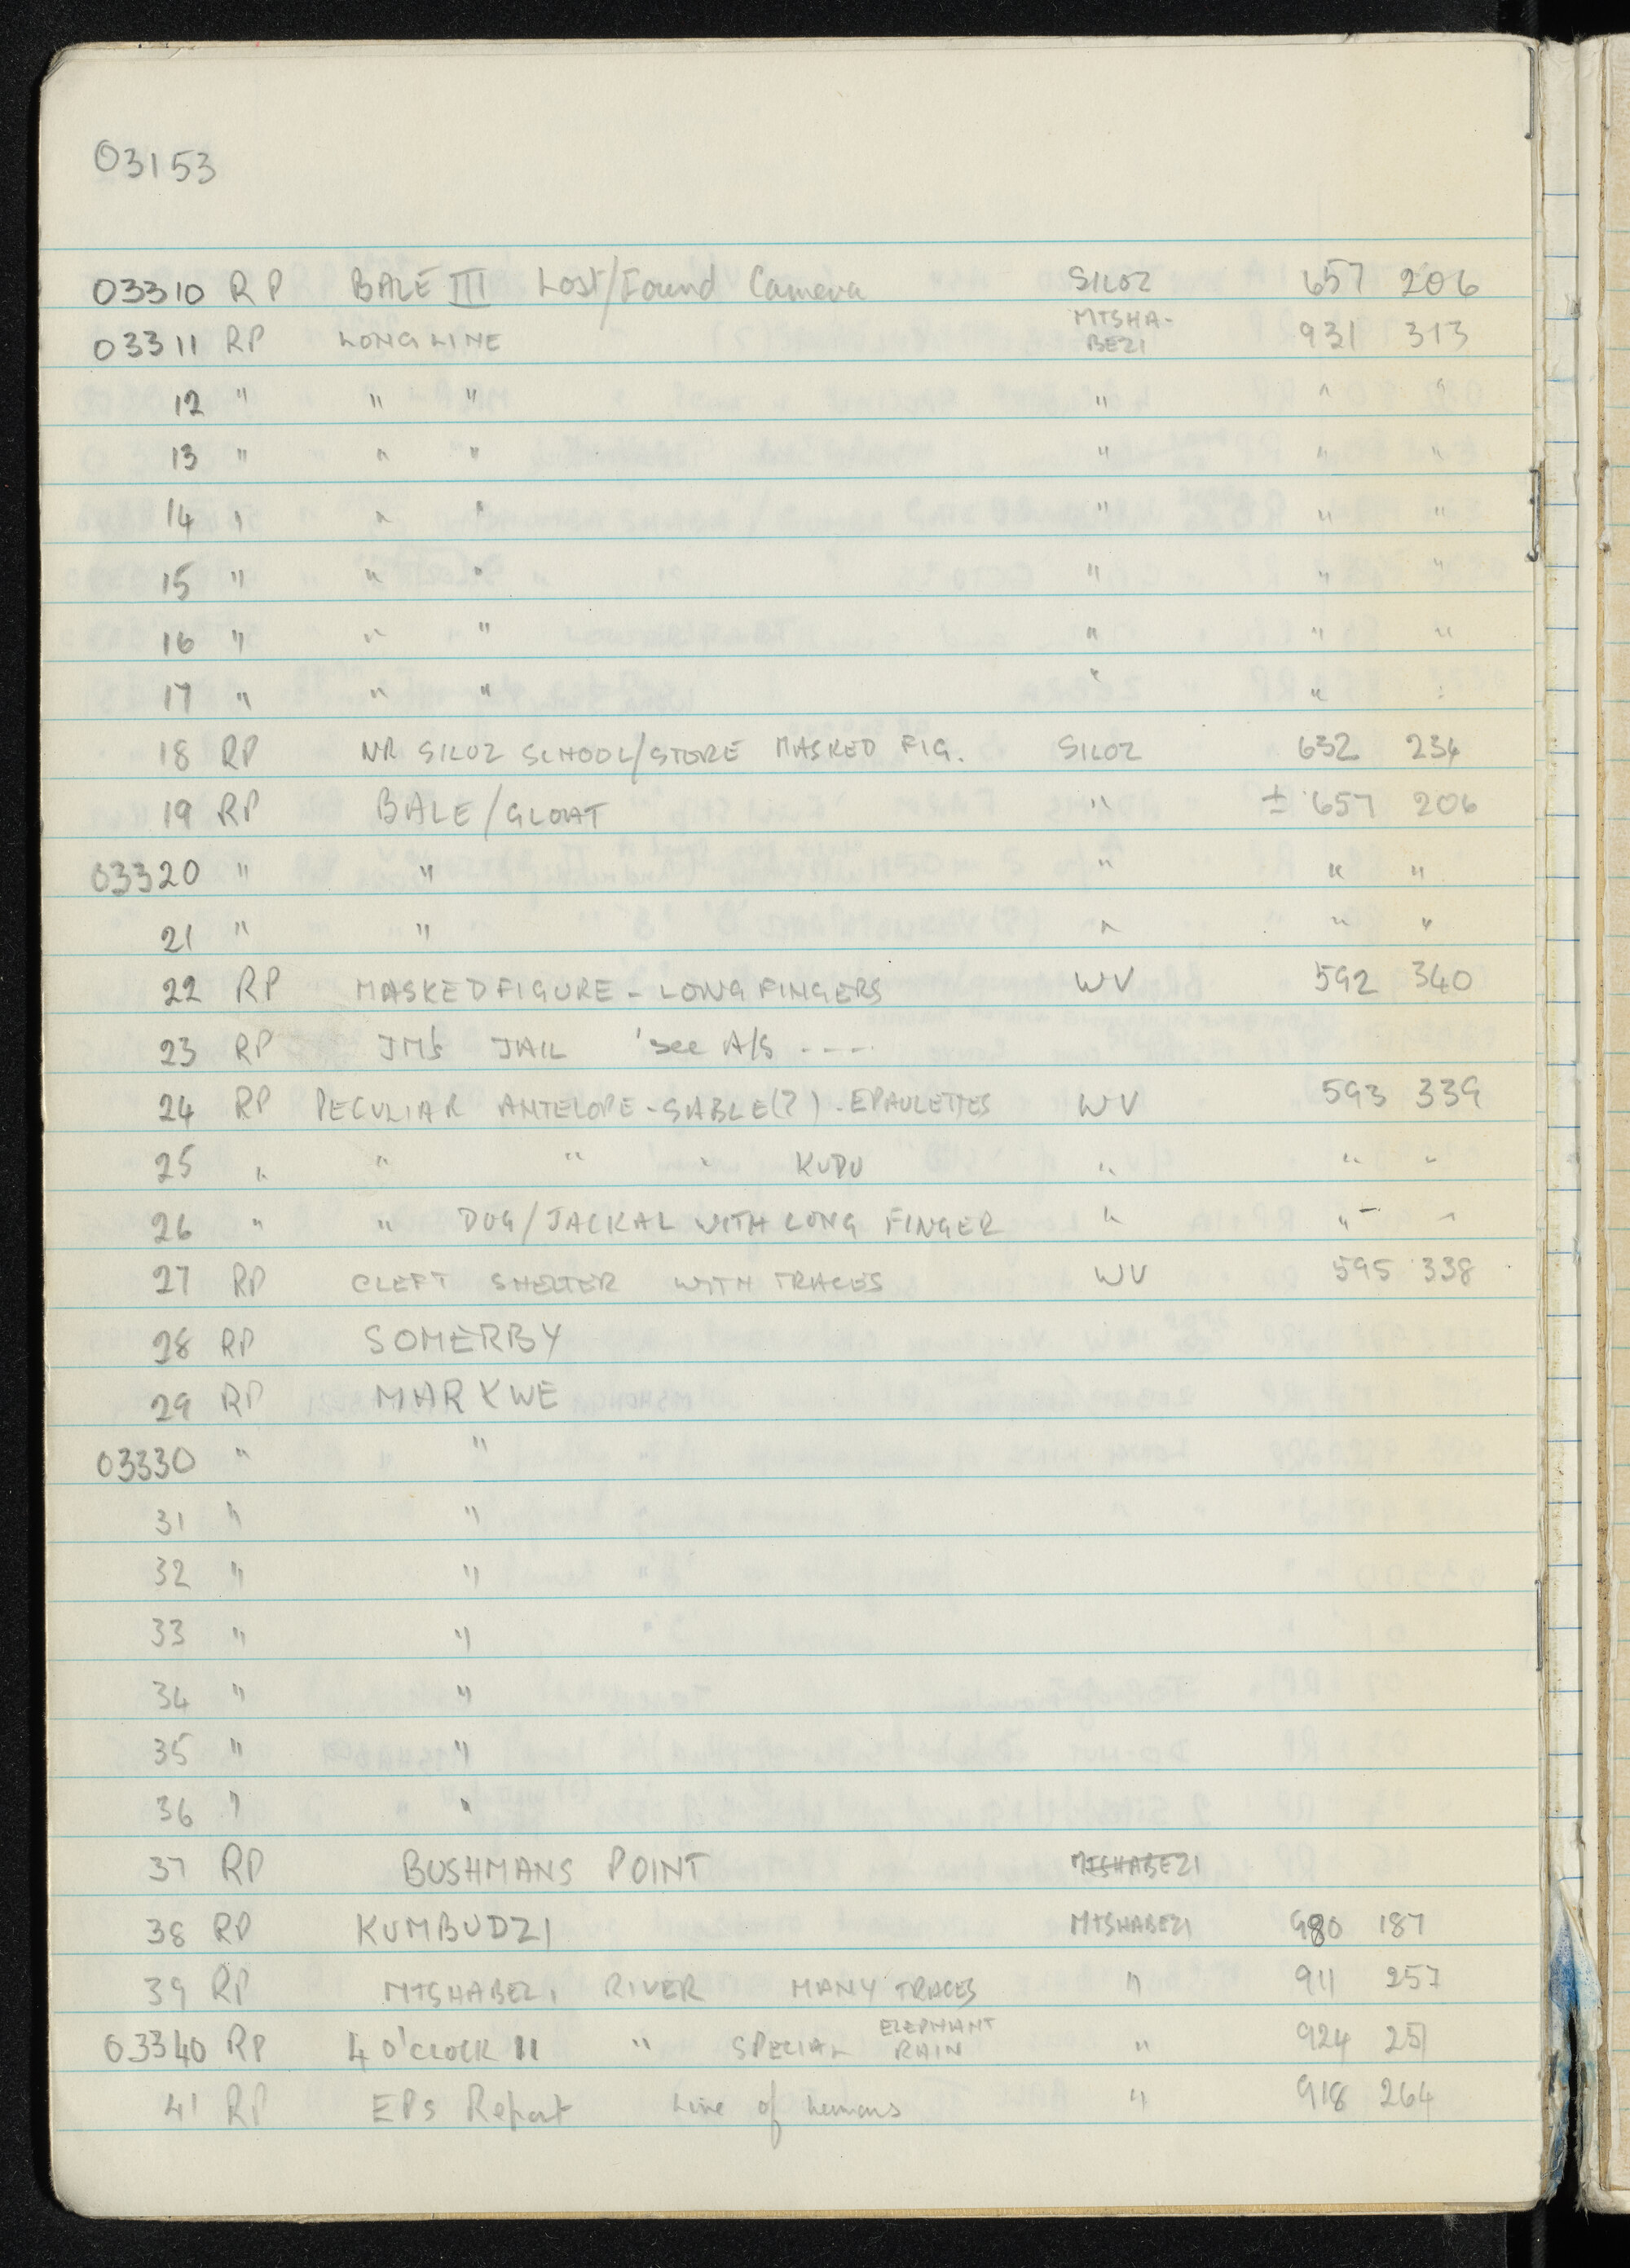 03153
03310 RP BALE III Lost/Found Camera SILOZ 657 206
03311 RP LONG LINE MTSHA-BEZI 931 313
12 " " " " " "
13 " " " " " "
14 " " " " " "
15 " " " " " "
16 " " " " " "
17 " " " " " "
18 RP NR SILOZ SCHOOL/STORE MASKED FIG. SILOZ 632 234
19 RP BALE/GLOAT " ± 657 206
03320 " " " " "
21 " " " " "
22 RP MASKED FIGURE - LONG FINGERS WV 592 340
23 RP JM's JAIL 'see A/S ----
24 RP PECULIAR ANTELOPE - SABLE(?) - EPAULETTES WV 593 339
25 " " " " KUDU " " "
26 " " DOG/JACKAL WITH LONG FINGER " " "
27 RP CLEFT SHELTER WITH TRACES WV 595 338
28 RP SOMERBY
29 RP MARKWE
03330 " "
31 " "
32 " "
33 " "
34 " "
35 " "
36 " "
37 RP BUSHMANS POINT MTSHABEZI
38 RP KUMBUDZI MTSHABEZI 980 187
39 RP MTSHABEZI RIVER MANY TRACES " 911 257
03340 RP 4 O'CLOCK II " SPECIAL ELEPHANT RAIN " 924 251
41 RP EPs Report Line of humans " 918 264